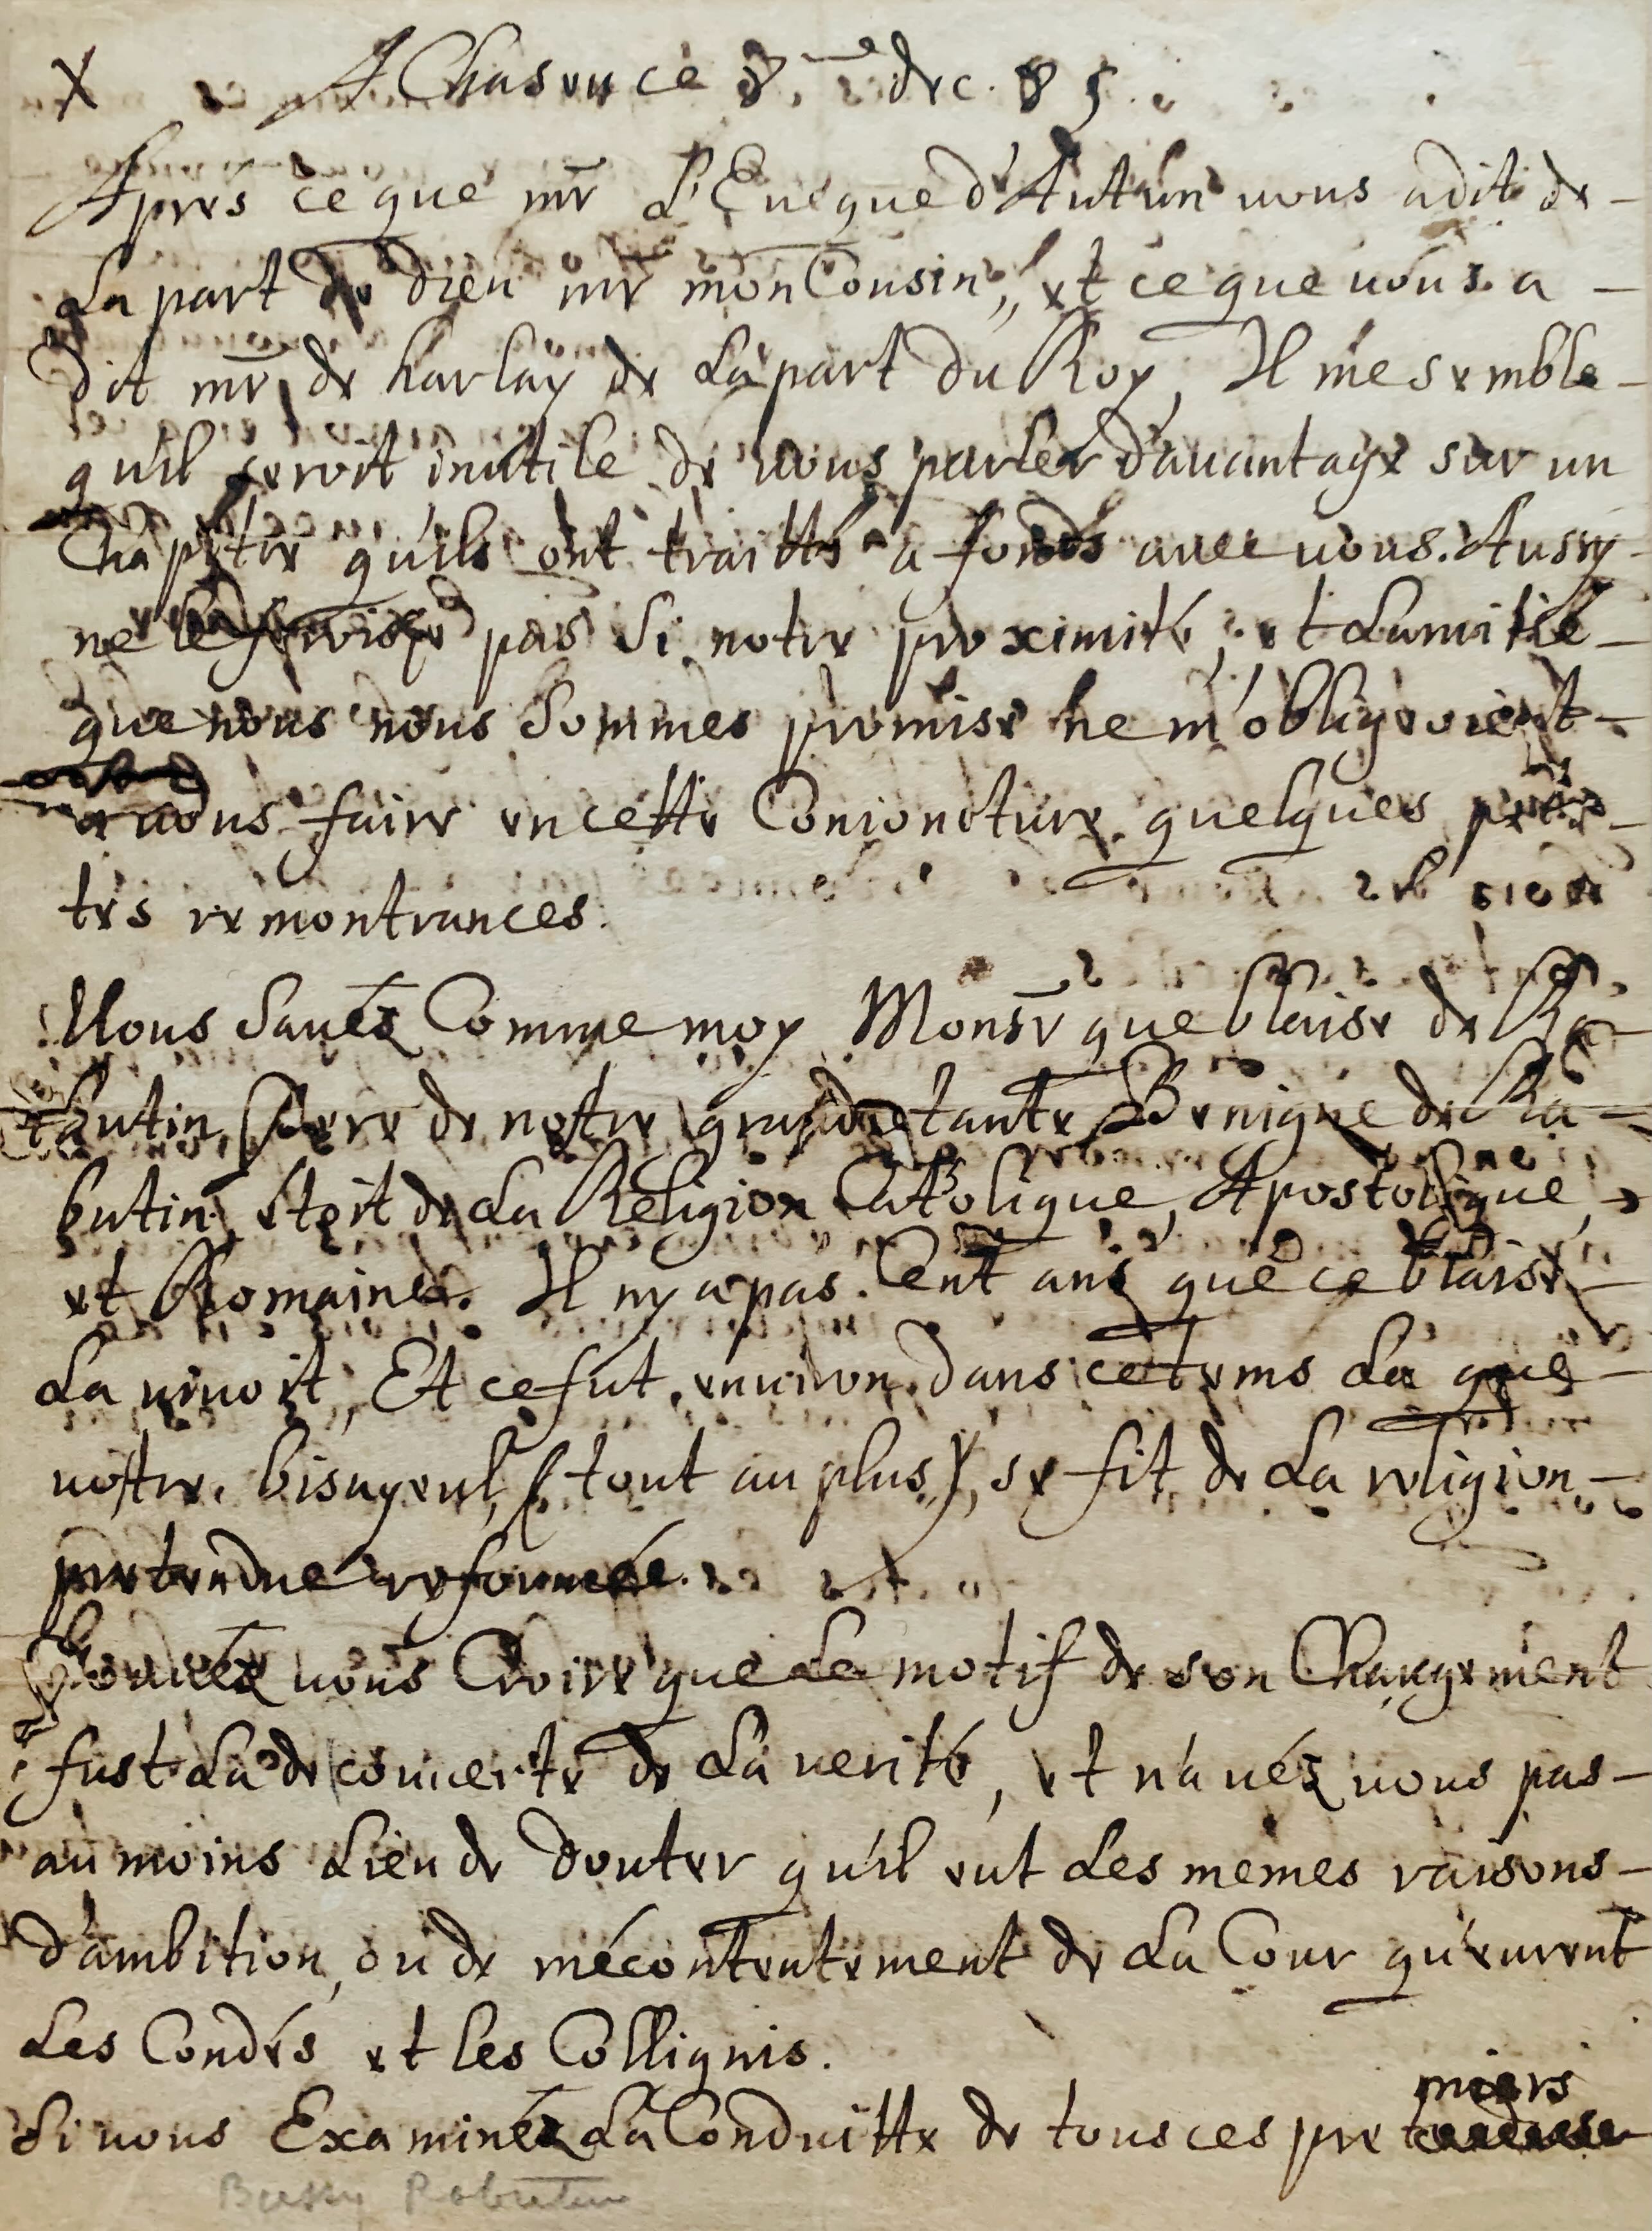 X A Chaseu ce 8.me dec. 85.
Apres ce que mr L'Eueque d'Autun uous a dit de
La part de dieu mr mon Cousin, et ce que uous a
dit mr de harlay de La part du Roy, Il me semble
qu'il seroit inutile de uous parler d'auantage sur un
Chapitre qu'ils ont traitté a fonds auec uous. Aussy
ne le ferois je pas Si notre proximité, et L'amitié
que nous nous Sommes promise ne m'obligeoient
a uous faire en cette Conioncture quelques peti-
tes remontrances.
Uous Saués Comme moy Monsr que blaise de Ra-
butin Pere de nostre grande tante Benigne de Ra-
butin, étoit de La Religion Catolique, Apostolique,
et Romaine. Il ny a pas Cent ans que ce blaise
La uiuoit, Et ce fut enuiron dans ce tems La que
uostre bisayeul, (tout au plus) se fit de La religion
pretendue reformée.
Pouués uous Croire que Le motif de son Changement
fust La decouuerte de La uerité, et n'aués uous pas
au moins Lieu de douter qu'il eut Les memes raisons
d'ambition, ou de mécontentement de La Cour qu'eurent
Les Condés et les Collignis.
miers
Si uous Examinés La Conduitte de tous ces pre
Bussy Rabutin